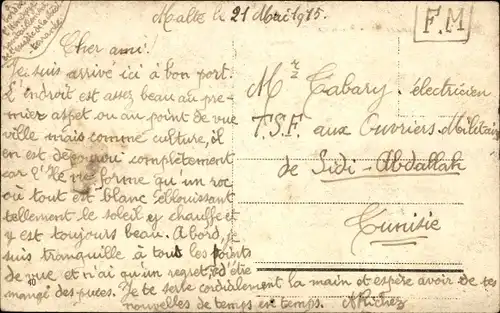 Malte le 21 Mai 1915.
F.M
Cher ami!
Je suis arrivé ici à bon port.
L'endroit est assez beau au pre-
mier aspet ou au point de vue
ville mais comme culture, il
en est dépourvu complètement
car l'île ne forme qu'un roc
où tout est blanc éblouissant
tellement le soleil y chauffe et
y est toujours beau. A bord, je
suis tranquille à tout les points
de vue et n'ai qu'un regret, d'être
mangé des puces. Je te serre cordialement la main et espère avoir de tes
nouvelles de temps en temps. A Richez
Mr Cabary, électricien
T.S.F. aux Ouvriers Militaires
de Sidi-Abdallah
Tunisie
40